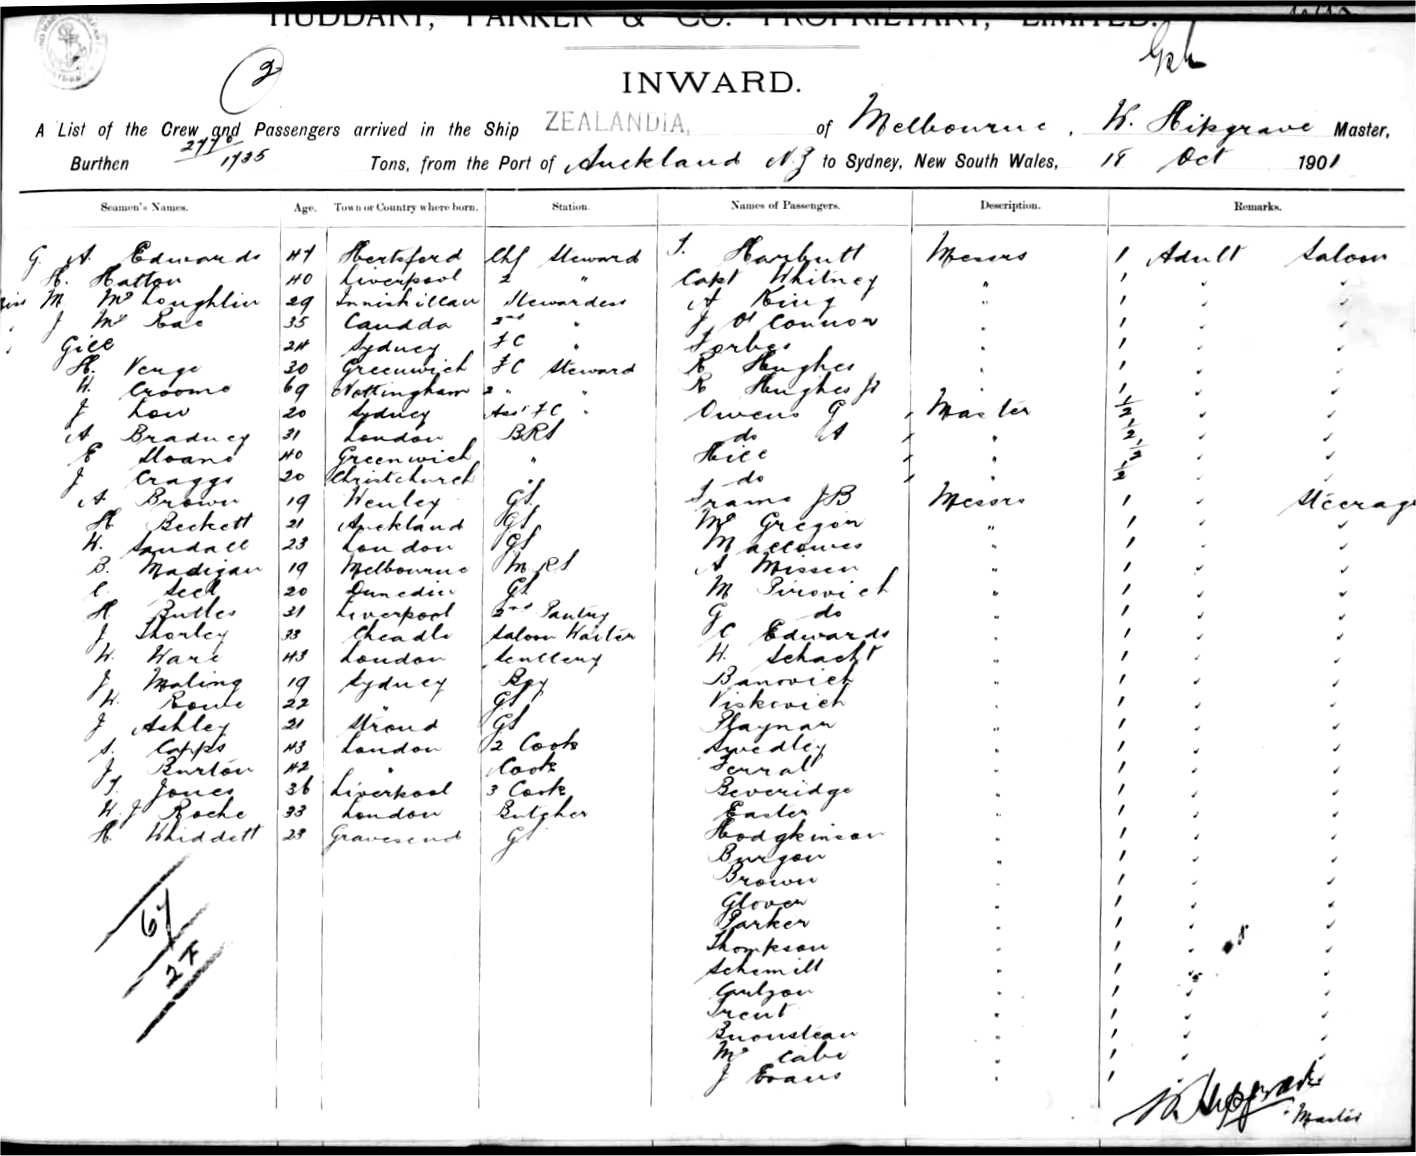 HUDDART, PARKER & CO. PROPRIETARY, LIMITED.
2
INWARD.
A List of the Crew and Passengers arrived in the Ship ZEALANDIA, of Melbourne, W. Hipgrave Master,
Burthen 2770 1735 Tons, from the Port of Auckland NZ to Sydney, New South Wales, 18 Oct 1901
Seamen's Names. Age. Town or Country where born. Station. Names of Passengers. Description. Remarks.
G A Edwards 47 Hertsford Chf Steward T. Harbutt Messrs 1 Adult Saloon
H. Hatton 40 Liverpool 2 " Capt Whitney " 1 " "
M McLoughlin 29 Inniskillan Stewardess A King " 1 " "
J McRae 35 Canada 2nd " J O'Connor " 1 " "
Gill 24 Sydney FC " Forbes " 1 " "
H. Verge 30 Greenwich FC Steward R Hughes " 1 " "
W. Croome 69 Nottingham 2 " " R Hughes Jr " 1 " "
J Low 20 Sydney Asst FC " Owens G Master 1/2 " "
A Bradney 31 London BRS do A " 1/2 " "
E Sloane 40 Greenwich " Hill " 1/2 " "
J Craggs 20 Christchurch " do " 1/2 " "
A Brown 19 Henley GS Trams JB Messrs 1 " Steerage
H Beckett 21 Auckland GS McGregor " 1 " "
W. Sandall 23 London GS " 1 " "
B. Madigan 19 Melbourne MRS A Missen " 1 " "
C Seed 20 Dunedin GS M Pirovich " 1 " "
H Butles 31 Liverpool 2nd Pantry G do " 1 " "
J Shorley 33 Cheadle Saloon Waiter C Edwards " 1 " "
W. Ware 43 London Scullery W. Schacht " 1 " "
J Moling 19 Sydney Boy Banovich " 1 " "
W. Rowe 22 " GS Viskovich " 1 " "
J Ashley 21 Stroud GS Playnar " 1 " "
S. Capps 43 London 2 Cook Swedley " 1 " "
J Burton 42 " Cook Ferrall " 1 " "
T. Jones 36 Liverpool 3 Cook Beveridge " 1 " "
W. J Roche 33 London Butcher Easter " 1 " "
H Whiddett 23 Gravesend GS Hodgkinson " 1 " "
Burgon " 1 " "
Brown " 1 " "
Glover " 1 " "
67 Parker " 1 " "
Thompson " 1 " "
27 Schemill " 1 " "
Carlzon " 1 " "
Trent " 1 " "
" 1 " "
McCabe " 1 " "
J Evans " 1
W Hipgrave
Master